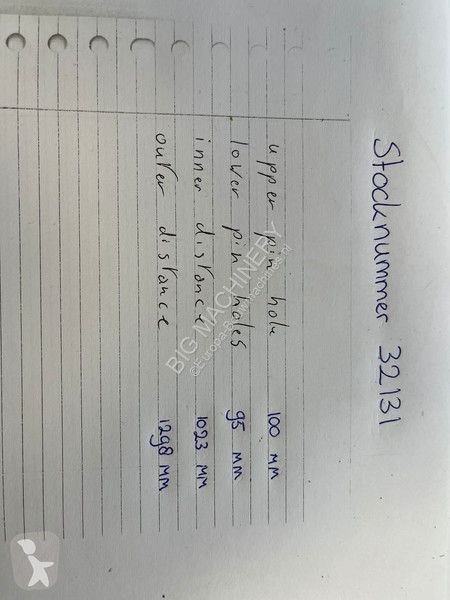 Stocknummer 32131
upper pin hole 100 mm
lower pin holes 95 mm
inner distance 1023 mm
outer distance 1298 mm
BIG MACHINERY
©Europa-Bouwmachines.nl